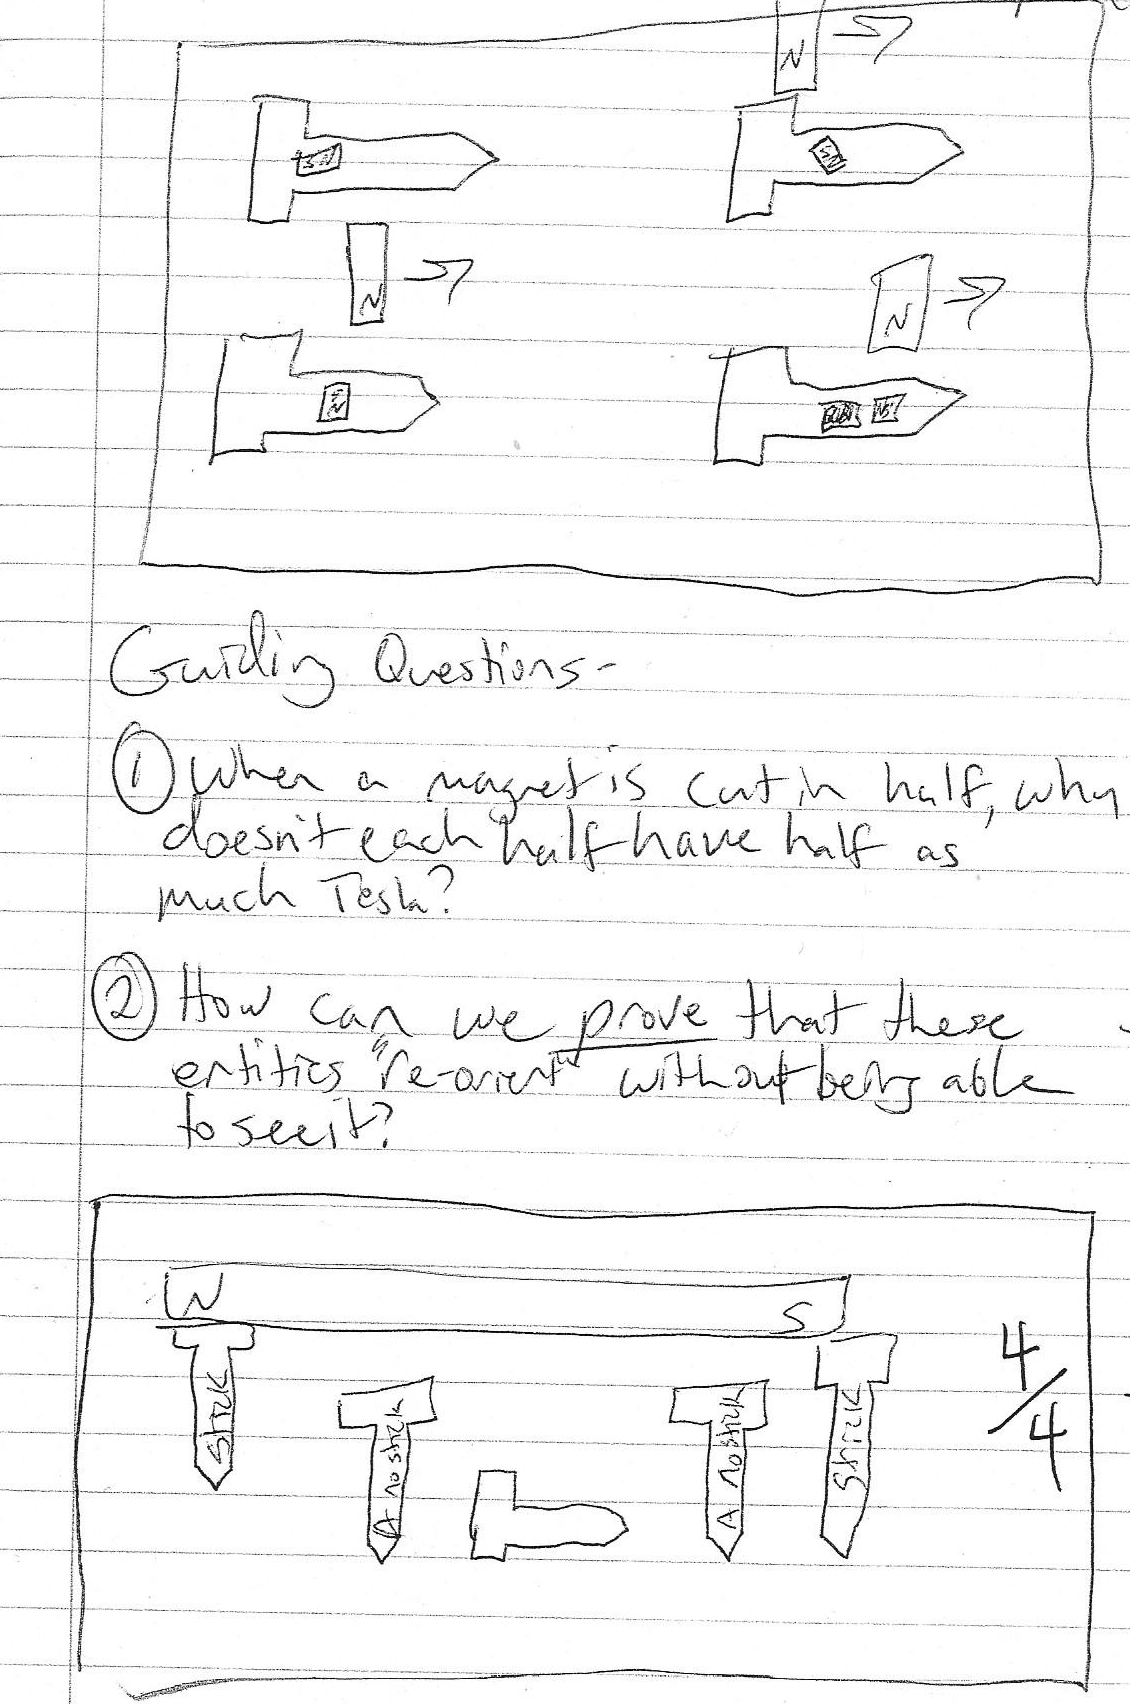 N
SN
SN
N
N
SN
NS
Guiding Questions-
① When a magnet is cut in half, why
doesn't each half have half as
much Tesla?
② How can we prove that these
entities "re-orient" without being able
to see it?
N
S
stick
A no stick
A no stick
stick
4/4